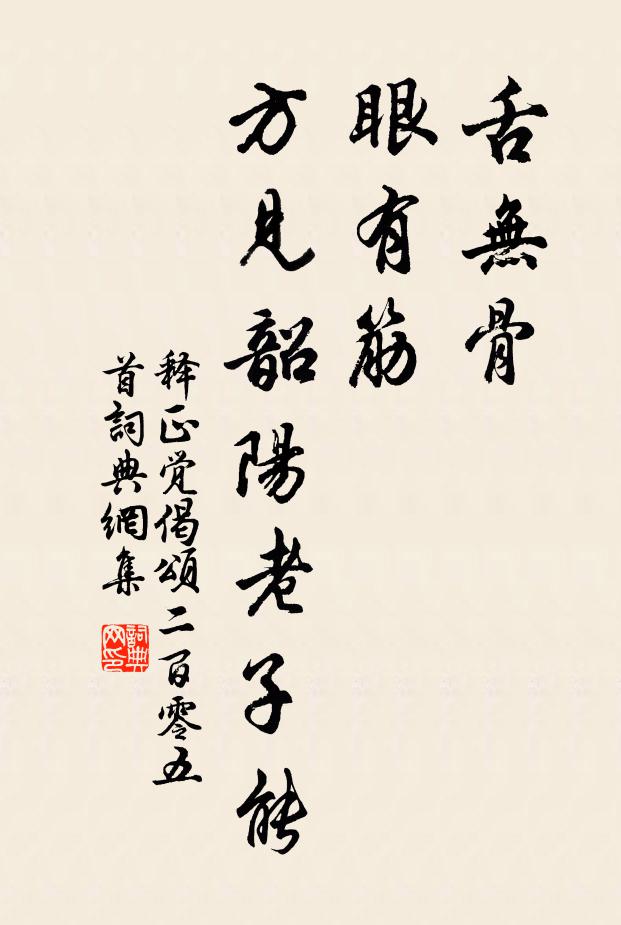 舌無骨
眼有筋
方見韶陽老子能
释正觉偈頌二百零五
首詞典網集
詞典
网印